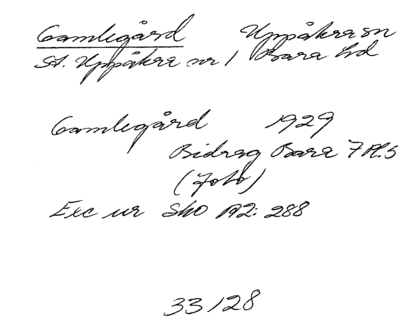 Gamlegård Uppåkra sn
St. Uppåkra nr 1 Bara hd
Gamlegård 1929
Bidrag Bara 7 Pl.5
(foto)
Exc ur Sko A2: 288
33/28